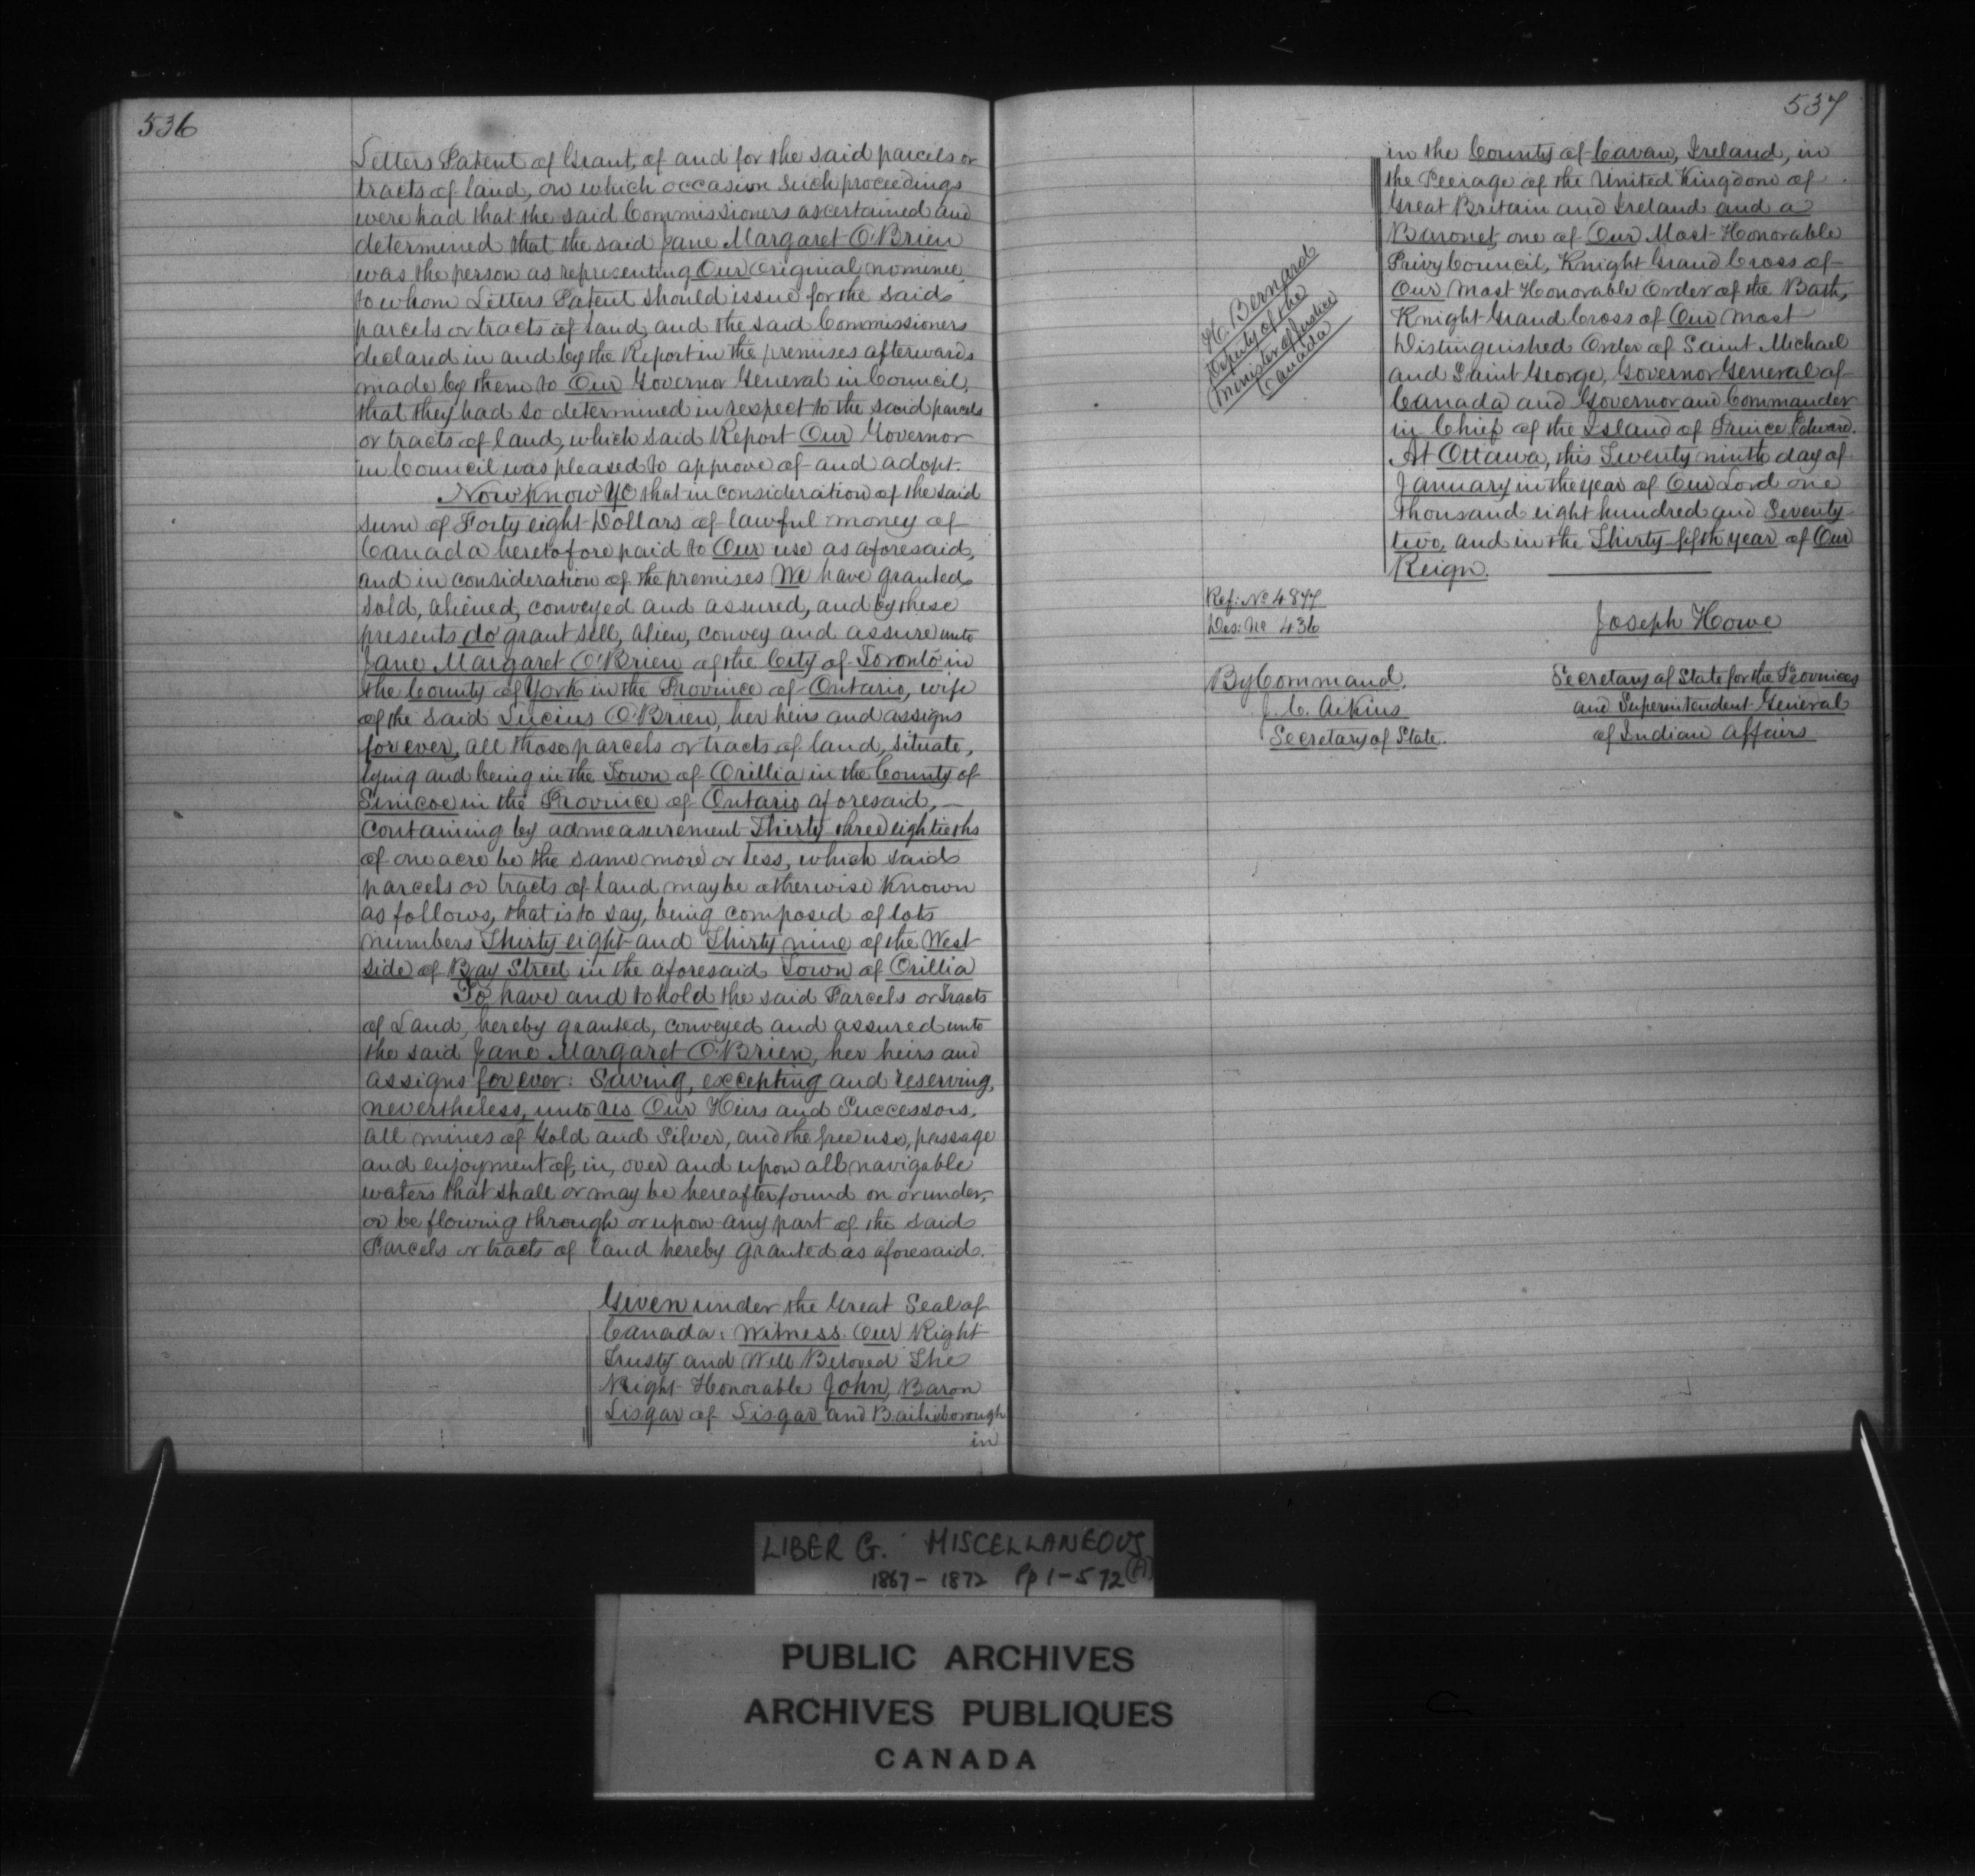 536
Letters Patent of Grant, of and for the said parcels or
tracts of land, on which occasion such proceedings
were had that the said Commissioners ascertained and
determined that the said Jane Margaret O'Brien
was the person as representing Our original nominee
to whom Letters Patent should issue for the said
parcels or tracts of land, and the said Commissioners
declared in and by the Report in the premises afterwards
made by them to Our Governor General in Council,
that they had so determined in respect to the said parcels
or tracts of land, which said Report Our Governor
in Council was pleased to approve of and adopt.
Now Know Ye that in consideration of the said
sum of Forty eight Dollars of lawful money of
Canada heretofore paid to Our use as aforesaid,
and in consideration of the premises We have granted
sold, aliened, conveyed and assured, and by these
presents do grant sell, alien, convey and assure unto
Jane Margaret O'Brien of the City of Toronto in
the County of York in the Province of Ontario, wife
of the said Lucius O'Brien, her heirs and assigns
for ever, all those parcels or tracts of land, situate,
lying and being in the Town of Orillia in the County of
Simcoe in the Province of Ontario aforesaid,
containing by admeasurement Thirty three eightieths
of one acre be the same more or less, which said
parcels or tracts of land may be otherwise known
as follows, that is to say, being composed of lots
numbers Thirty eight and Thirty nine of the West
side of Bay Street in the aforesaid Town of Orillia
To have and to hold the said Parcels or Tracts
of Land, hereby granted, conveyed and assured unto
the said Jane Margaret O'Brien, her heirs and
assigns for ever: Saving, excepting and reserving,
nevertheless, unto us Our Heirs and Successors,
all mines of Gold and Silver, and the free use, passage
and enjoyment of, in, over and upon all navigable
waters that shall or may be hereafter found on or under,
or be flowing through or upon any part of the said
Parcels or tracts of land hereby granted as aforesaid.
Given under the Great Seal of
Canada: Witness Our Right
Trusty and Well Beloved The
Right Honorable John, Baron
Lisgar of Lisgar and Bailieborough
in
537
in the County of Cavan, Ireland, in
the Peerage of the United Kingdom of
Great Britain and Ireland and a
Baronet, one of Our Most Honorable
Privy Council, Knight Grand Cross of
Our Most Honorable Order of the Bath,
Knight Grand Cross of Our most
Distinguished Order of Saint Michael
and Saint George, Governor General of
Canada and Governor and Commander
in Chief of the Island of Prince Edward.
At Ottawa, this Twenty ninth day of
January in the year of Our Lord one
thousand eight hundred and Seventy
two, and in the Thirty fifth year of Our
Reign.
H. Bernard
Deputy of the
Minister of Justice
Canada
Ref: No 4877
Des: No 436
Joseph Howe
Secretary of State for the Provinces
and Superintendent General
of Indian Affairs
By Command,
J. C. Aikins
Secretary of State.
LIBER G. MISCELLANEOUS
1867-1872 Pp 1-572 (A)
PUBLIC ARCHIVES
ARCHIVES PUBLIQUES
CANADA